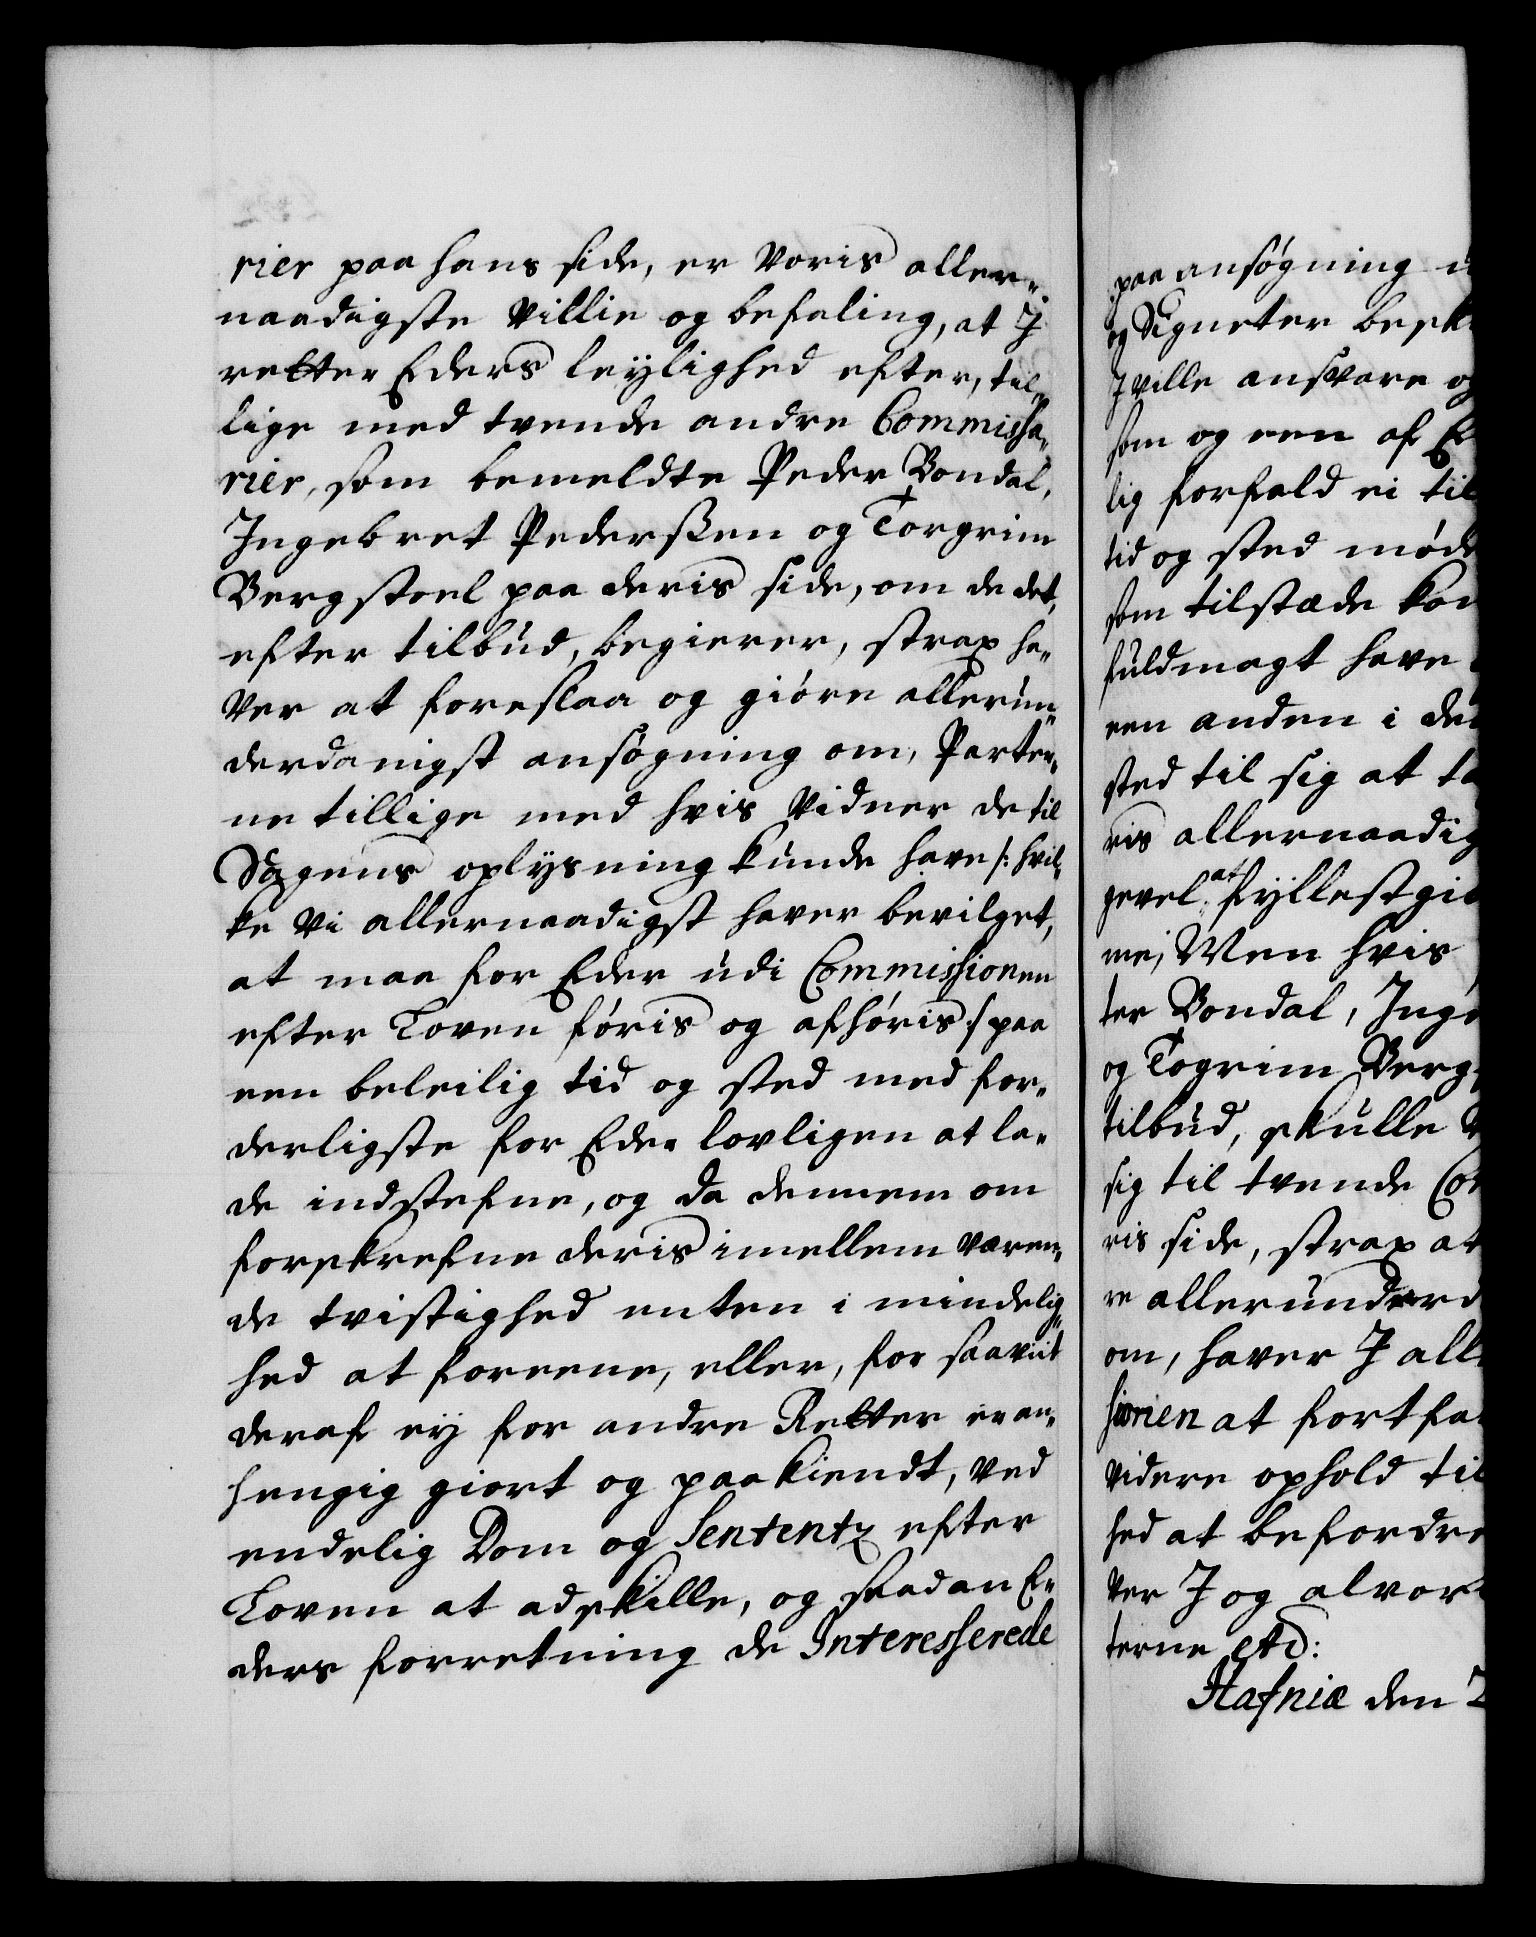 rier paa hans side, er Voris aller„
naadigste Villie og befaling, at I
retter Eders leylighed efter, til„
lige med tvende andre Commissa„
rier, som bemeldte Peder Bondal,
Ingebret Pederßen og Torgrim
Bergstoel paa deris side, om de det,
efter tilbud, begierer, strax ha„
ver at foreslaa og giøre allerun„
derdanigst ansøgning om, Parter„
ne tillige med hvis Vidner de til
Sagens oplysning kunde have /: hvil„
ke Vi allernaadigst haver bevilget,
at maa for Eder udi Commissionen
efter Loven føris og afhøris :/ paa
een beleilig tid og sted med for„
derligste for Eder lovligen at la„
de indstefne, og da dennem om
forskrefne deris imellem væren„
de tvistighed enten i mindelig„
hed at foreene, eller, for saavit
deraf ey for andre Retter er an„
hengig giort og paakiendt, ved
endelig Dom og Sententz efter
Loven at adskille, og saadan E„
ders forretning de Interesserede
paa ansøgning u
og Signeter besk
I ville ansvare og
som og een af E
lig forfald ei til
tid og sted møde
som tilstæde kom
fuldmagt have
een anden i de
sted til sig at ta
ris allernaadig
gevel at fyllestgiø
me, Men hvis
ter Bondal, Inge
og Togrim Berg
tilbud, skulle
sig til tvende Com
ris side, strax at
re allerunderd
om, haver I all
sionen at fortfa
videre ophold til
hed at befordre
ver I og alvor
terne etc:
Hafniæ den 2